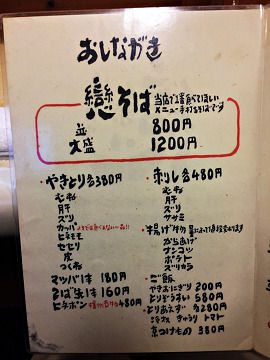 おしながき
戀そば
当店で1番食べてほしい
メニュー手打ちそばです
並 800円
大盛 1200円
・やきとり各380円
むね
肝
ズリ
カッパ
ヒネモモ
セセリ
皮
つくね
マツバ1本 180円
そば先1本 160円
ヒネポン 480円
・刺し各480円
むね
肝
ズリ
ササミ
・揚げ物
からあげ
ナンコツ
ポテト
ズリカラ
・ご飯
やきおにぎり 200円
とりぞうすい 580円
・とりあえず 各280円
きゅうり トマト
京つけもの 380円